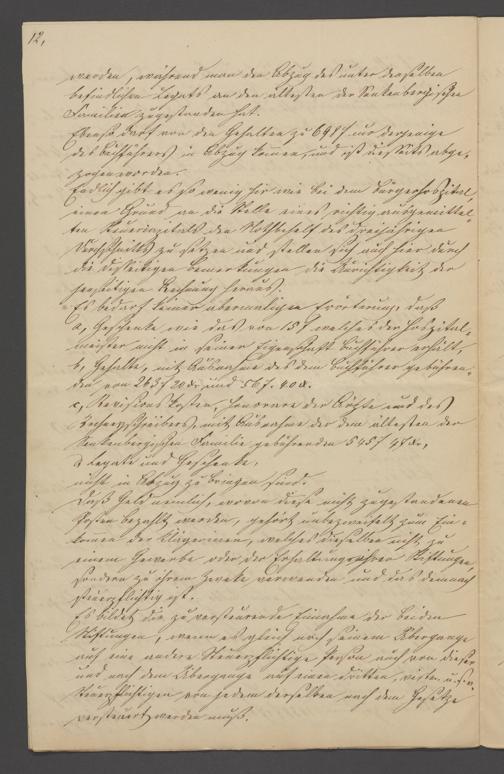 12,
werden, während man den Abzug des unter denselben
befindlichen Legats an den ältesten der Senkenbergischen
Familien zugestanden hat.
Ebenso darf von den Gehalten zu 698 f nur derjenige
des Buchführers in Abzug kommen, und ist diesseits abge-
zogen worden.
Endlich gibt es so wenig hier wie bei dem Bürgerhospital,
einen Grund an die Stelle eines richtig ausgemittel-
ten Steuercapitals den Nothbehelf des dreijährigen
Durchschnitts zu setzen und stellen sich auch hier durch
die diesseitigen Bemerkungen die Unrichtigkeit der
jenseitigen Rechnung heraus.
Es bedarf keiner abermaligen Erörterung, daß
a, Geschenke wie das von 15 f welches der Hospital-
meister nicht in seiner Eigenschaft Buchführer erhält,
b, Gehalte, mit Ausnahme des dem Buchführer gebühren-
den von 263 f 20 und 56 f. 40
c, Revisions kosten, Honorare der Ärzte und des
mit Ausnahme der dem ältesten der
Senkenbergischen Familie gebührenden 545 f 48
d Legate und Geschenke,
nicht in Abzug zu bringen sind.
Das Geld nemlich, wovon diese nicht zugestandenen
Posten bezahlt werden, gehört unbezweifelt zum Ein-
komen der Klägerinnen, welches dieselben nicht zu
einem Gewerbe oder der Erhaltung ihrer Stiftungen,
sondern zu ihrem Zwecke verwenden und das demnach
steuerpflichtig ist.
Es bildet die zu versteuernde Einnahme der beiden
Stiftungen, wenn es gleich nach seinem Übergange
auf eine andere steuerpflichtige Person auch von dieser
und nach dem Übergange auf einen dritten, vierten u.s.w.
Steuerpflichtigen von jedem derselben nach dem Gesetze
versteuert werden muß.